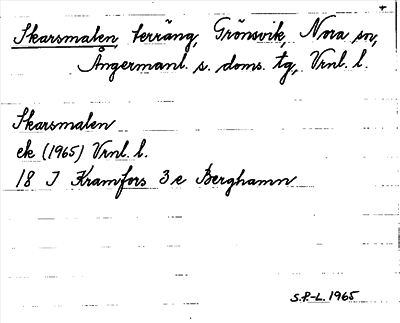 Skarsmalen, terräng, Grönsvik, Nora sn,
Ångermanl. s. doms. tg, Vrnl. l.
Skarsmalen
ek (1965) Vrnl. l.
18 I Kramfors 3 e Berghamn
S.P.-L. 1965